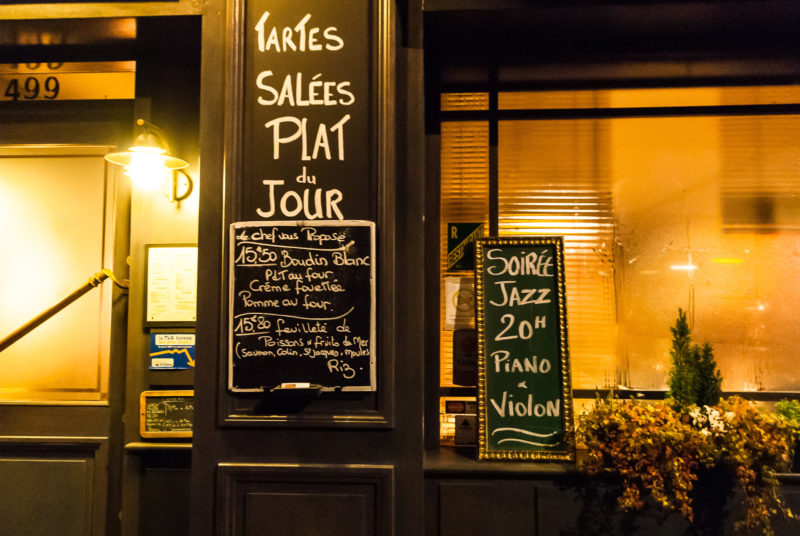 499
TARTES
SALÉES
PLAT
du
JOUR
Le chef vous Propose
15,€50 Boudin Blanc
Crème fouettée
Pomme au four.
15,€80 feuilleté de
Poissons & fruits de Mer
(Saumon, Colin, St Jacques, moules)
Riz.
la TVA baisse
SOIRÉE
JAZZ
20H
PIANO
&
VIOLON